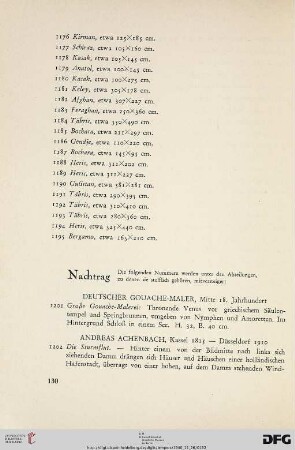 1176 Kirman, etwa 125×185 cm.
1177 Schiras, etwa 105×160 cm.
1178 Kasak, etwa 105×145 cm.
1179 Anatol, etwa 100×145 cm.
1180 Kasak, etwa 100×275 cm.
1181 Keley, etwa 305×178 cm.
1182 Afghan, etwa 307×227 cm.
1183 Feraghan, etwa 250×360 cm.
1184 Täbris, etwa 350×490 cm.
1185 Bochara, etwa 221×297 cm.
1186 Gendje, etwa 110×220 cm.
1187 Bochara, etwa 145×95 cm.
1188 Heris, etwa 322×211 cm.
1189 Heris, etwa 322×227 cm.
1190 Gulistan, etwa 381×281 cm.
1191 Täbris, etwa 290×395 cm.
1192 Täbris, etwa 310×410 cm.
1193 Täbris, etwa 280×360 cm.
1194 Heris, etwa 325×440 cm.
1195 Bergamo, etwa 163×210 cm.
Nachtrag Die folgenden Nummern werden unter den Abteilungen,
zu denen sie stofflich gehören, mitversteigert:
DEUTSCHER GOUACHE-MALER, Mitte 18. Jahrhundert
1201 Große Gouache-Malerei: Thronende Venus vor griechischem Säulen-
tempel und Springbrunnen, umgeben von Nymphen und Amoretten. Im
Hintergrund Schloß in einem See. H. 32, B. 40 cm.
ANDREAS ACHENBACH, Kassel 1815 — Düsseldorf 1910
1202 Die Sturmflut. — Hinter einem von der Bildmitte nach links sich
ziehenden Damm drängen sich Häuser und Häuschen einer holländischen
Hafenstadt, überragt von einer hohen, auf dem Damm stehenden Wind-
130
UNIVERSITÄTS-
BIBLIOTHEK
HEIDELBERG
DFG